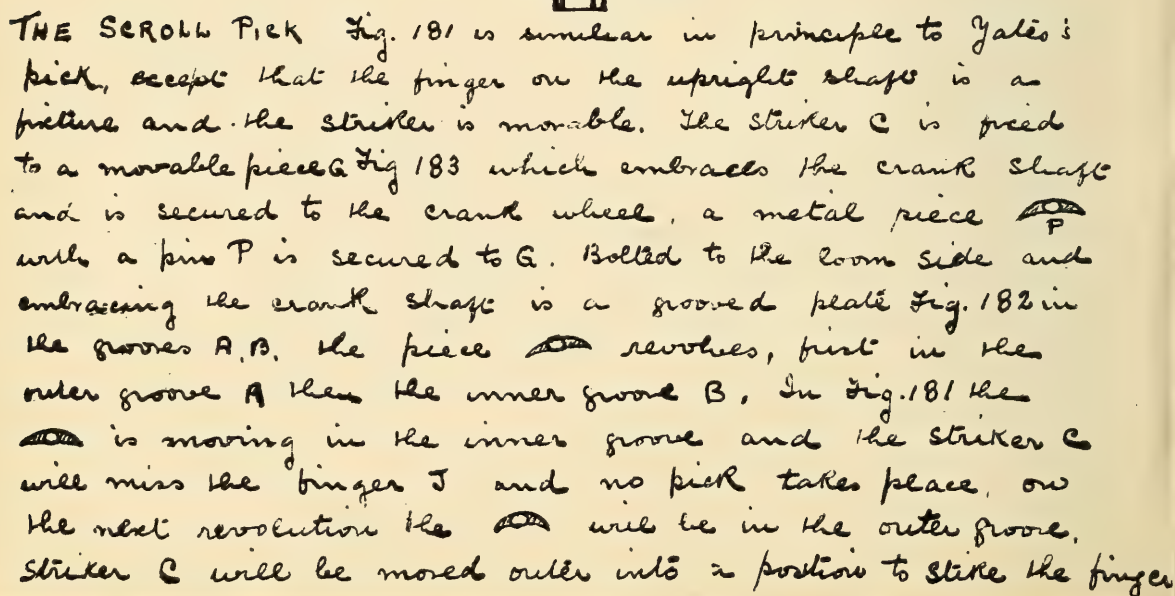 THE SCROLL PICK Fig. 181 is similar in principle to Yates's
pick, except that the finger on the upright shaft is a
fixture and the striker is movable. The striker C is fixed
to a movable piece G Fig 183 which embraces the crank shaft
and is secured to the crank wheel, a metal piece
P
with a pin P is secured to G. Bolted to the loom side and
embracing the crank shaft is a grooved plate Fig. 182 in
the grooves A,B, the piece revolves, first in the
outer groove A then the inner groove B. In Fig. 181 the
is moving in the inner groove and the striker C
will miss the finger J and no pick takes place, on
the next revolution the will be in the outer groove.
Striker C will be moved outer into a postion to stike the finger